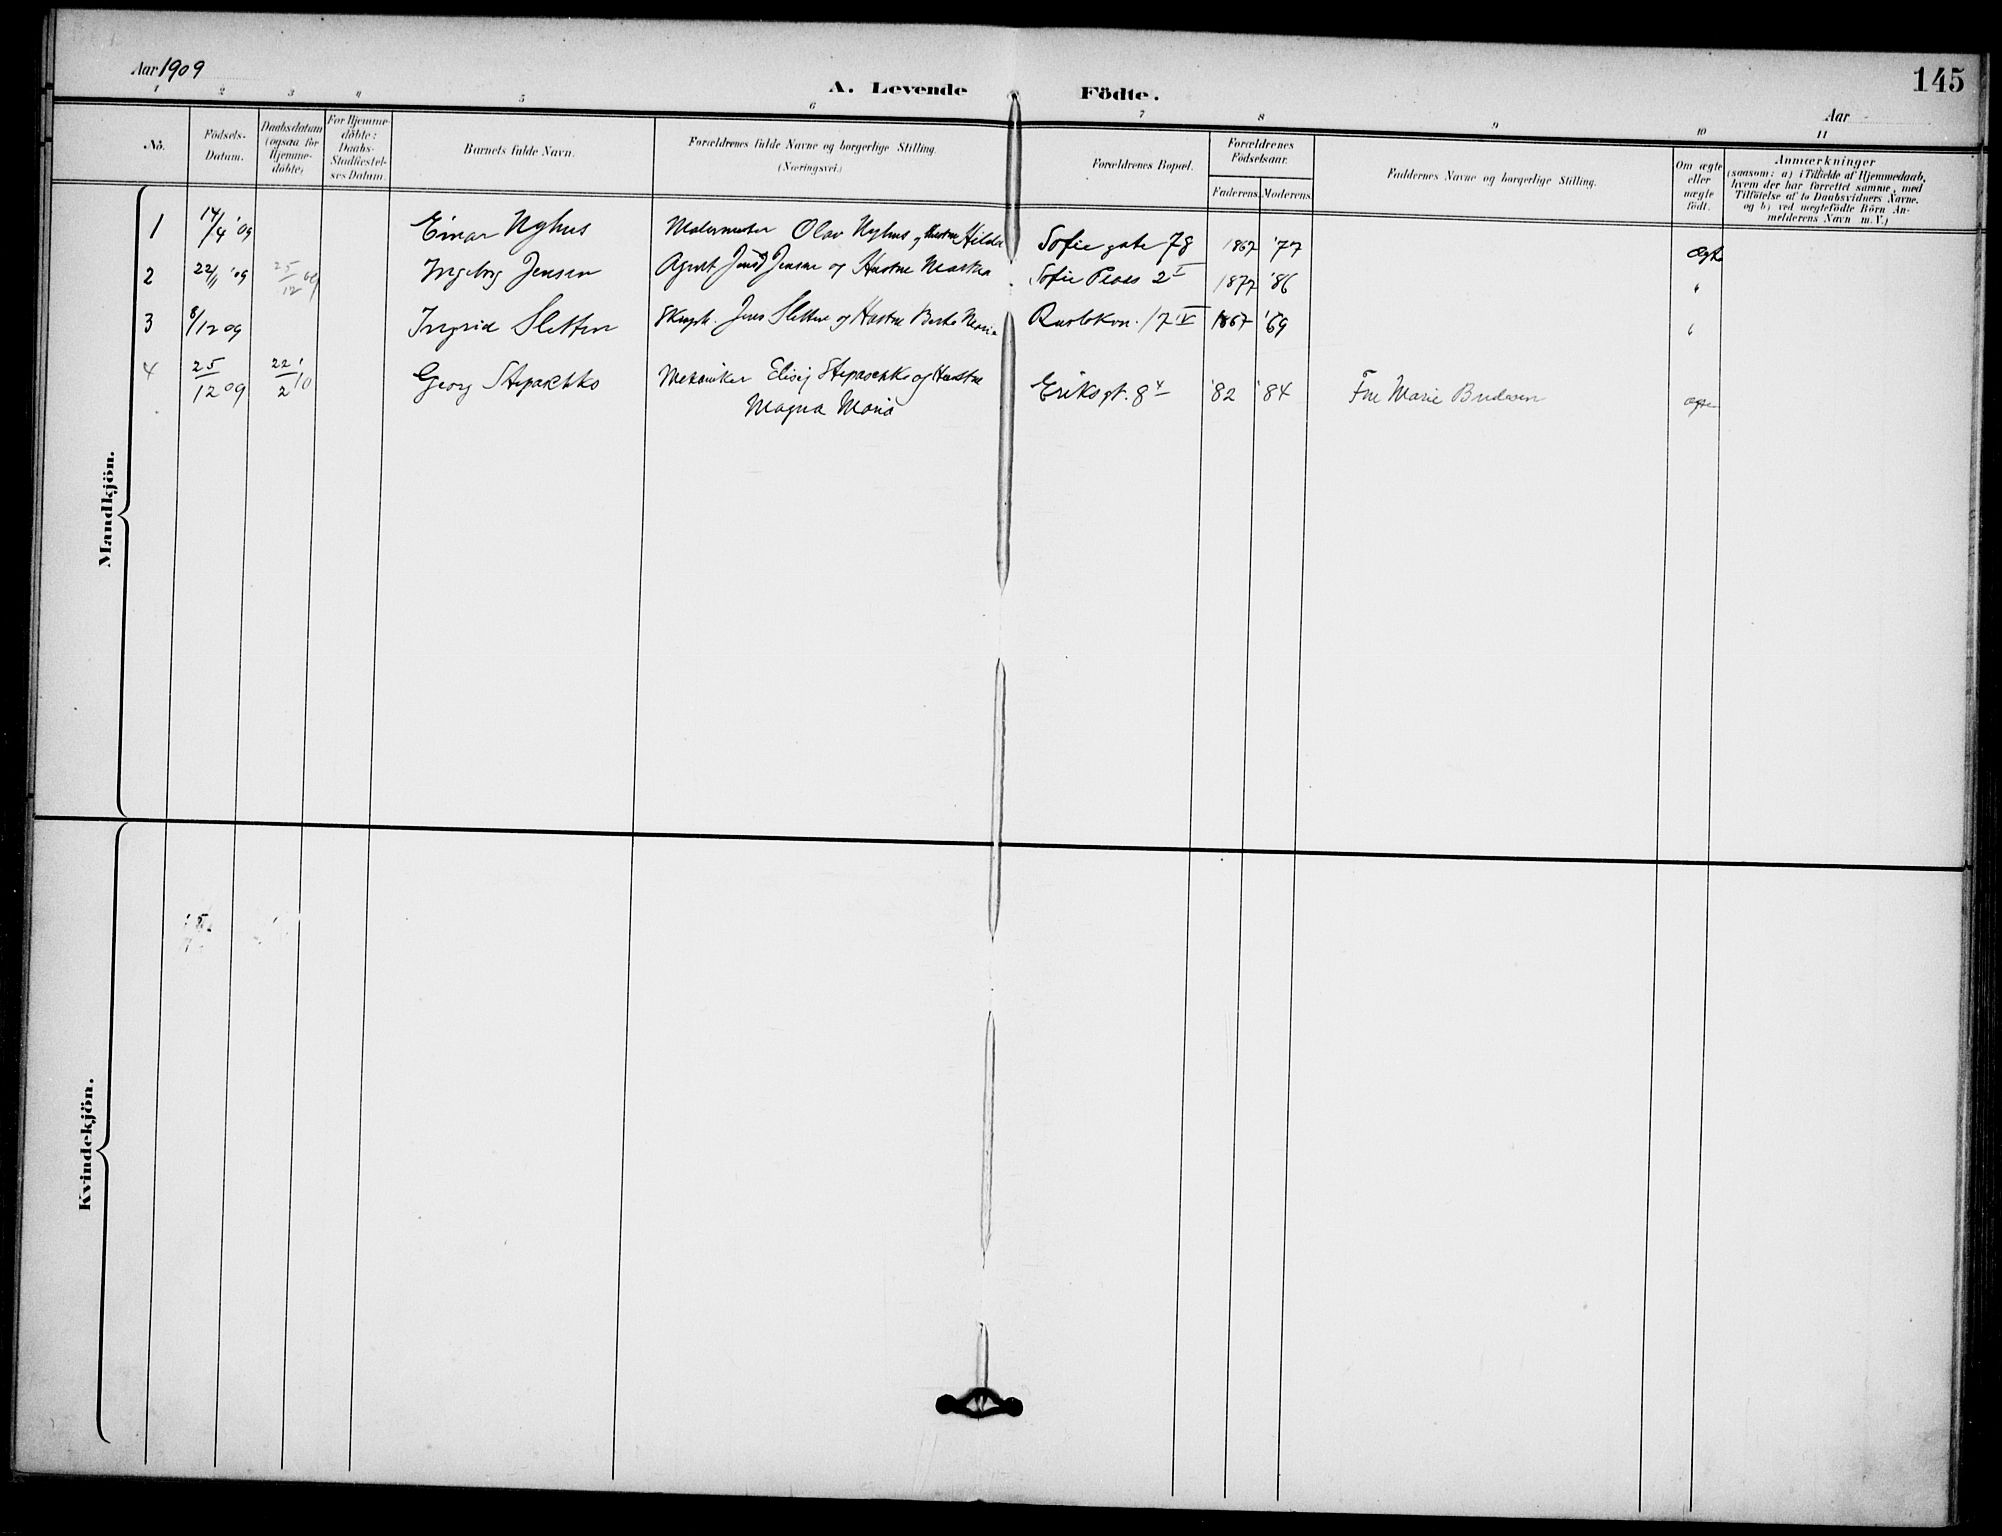 Aar 1909
A. Levende Födte.
145
Aar
1 2 3 4 5 6 7 8 9 10 11
No.
Födsels-Datum.
Daabsdatum (ogsaa for Hjemme-döbte)
For Hjemme-döbte: Daabs-Stadfæstel-ses Datum.
Barnets fulde Navn.
Forældrenes fulde Navne og borgerlige Stilling.
(Næringsvei.)
Forældrenes Bopæl.
Forældrenes Födselsaar.
Faderens. Moderens.
Faddernes Navne og borgerlige Stilling.
Om ægte eller uægte födt.
Anmærkninger
(saasom: a) i Tilfælde af Hjemmedaab,
hvem der har forrettet samme, med
Tilföielse af to Daabsvidners Navne.
og b) ved uægtefödte Börn An-
melderens Navn m. V.)
Mandkjön.
1 14/4 '09 Einar Nyhus Malermester Olav Nyhus og Hustru Hilda Sofie gate 78 1867 '77 ægte
2 22/11 '09 25/12 09 Ingeborg Jensen Agent Jensen og Hustru Martha Sofie Plads 2 I 1877 '86 "
3 8/12 09 Ingrid Sletten Jens Sletten og Hustru Berte Marie 17 IV 1867 '69 "
4 25/12 09 22/2 '10 Georg Stepaschko Mekaniker Elisij Stepaschko og Hustru
Magna Maria Eriksgt. 8 '82 '84 Fru Marie ægte
Kvindekjön.